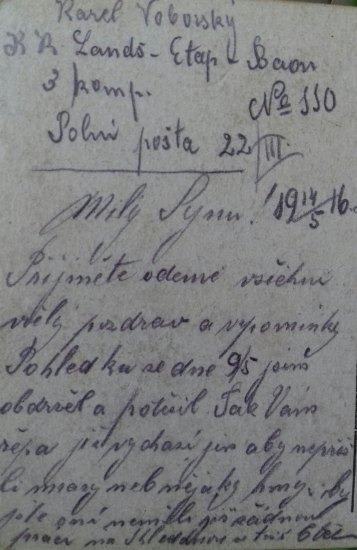 Karel Voborský
K K Lands-Etap-Baon
3 komp. No 110
Polní pošta 22/III.
Milý Synu! 19 14/5 16.
Přijměte odemě všichni
vřelý pozdrav a vypomínky
Pohledku se dne 9/5 jsem
obdržel a potěšil. Tak Vám
řepa již vychází jen aby nepřiš
li mrazy neb nějaký hmyz, by
jste s ní neměli již žádnou
práci na